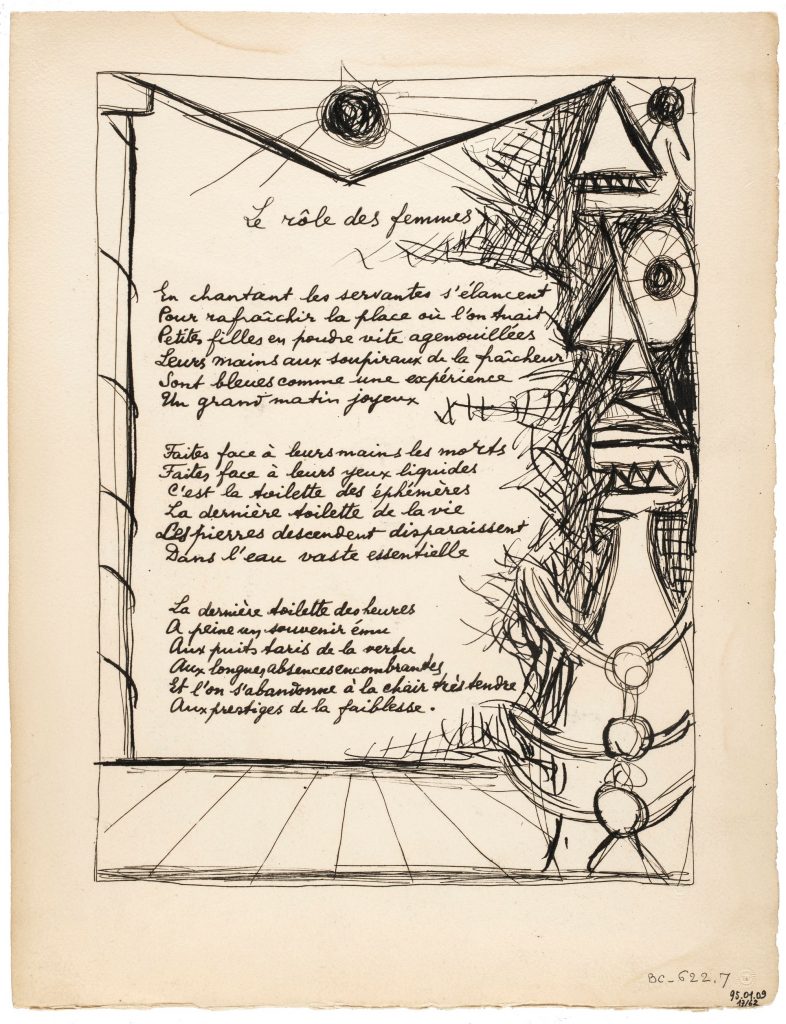 Le rôle des femmes
En chantant les servantes s'élancent
Pour rafraîchir la place où l'on tuait
Petites filles en poudre vite agenouillées
Leurs mains aux soupiraux de la fraîcheur
Sont bleues comme une expérience
Un grand matin joyeux
Faites face à leurs mains les morts
Faites face à leurs yeux liquides
C'est la toilette des éphémères
La dernière toilette de la vie
Les pierres descendent disparaissent
Dans l'eau vaste essentielle
La dernière toilette des heures
A peine un souvenir ému
Aux puits taris de la vertu
Aux longues absences encombrantes
Et l'on s'abandonne à la chair très tendre
Aux prestiges de la faiblesse.
BC-622.7
95.01.09
13/62